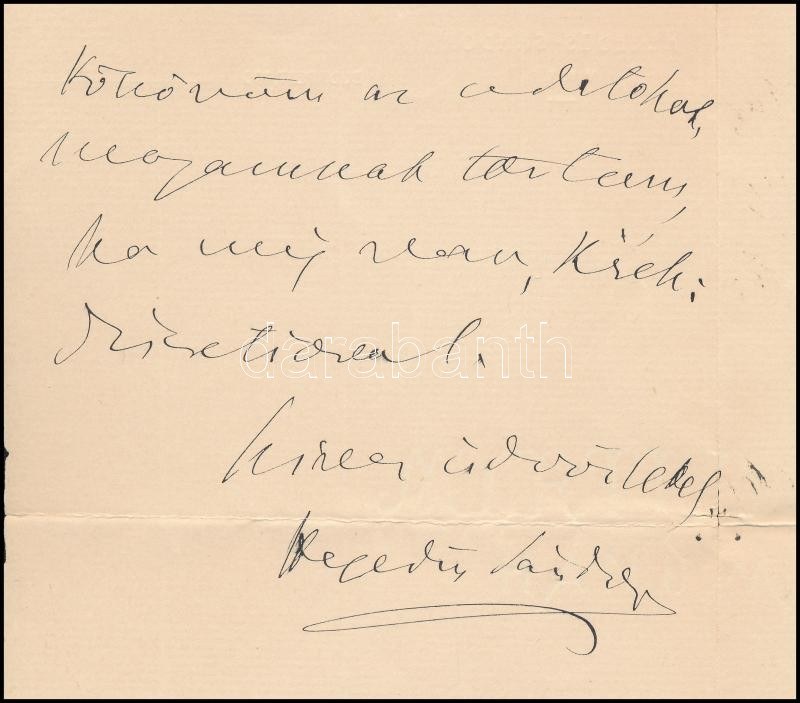 Köszönöm az adatokat,
magamnak tartam,
ha még van, kérek.
Discretioval.
darabanth
Szives üdvözlettel
Hegedüs Sándor